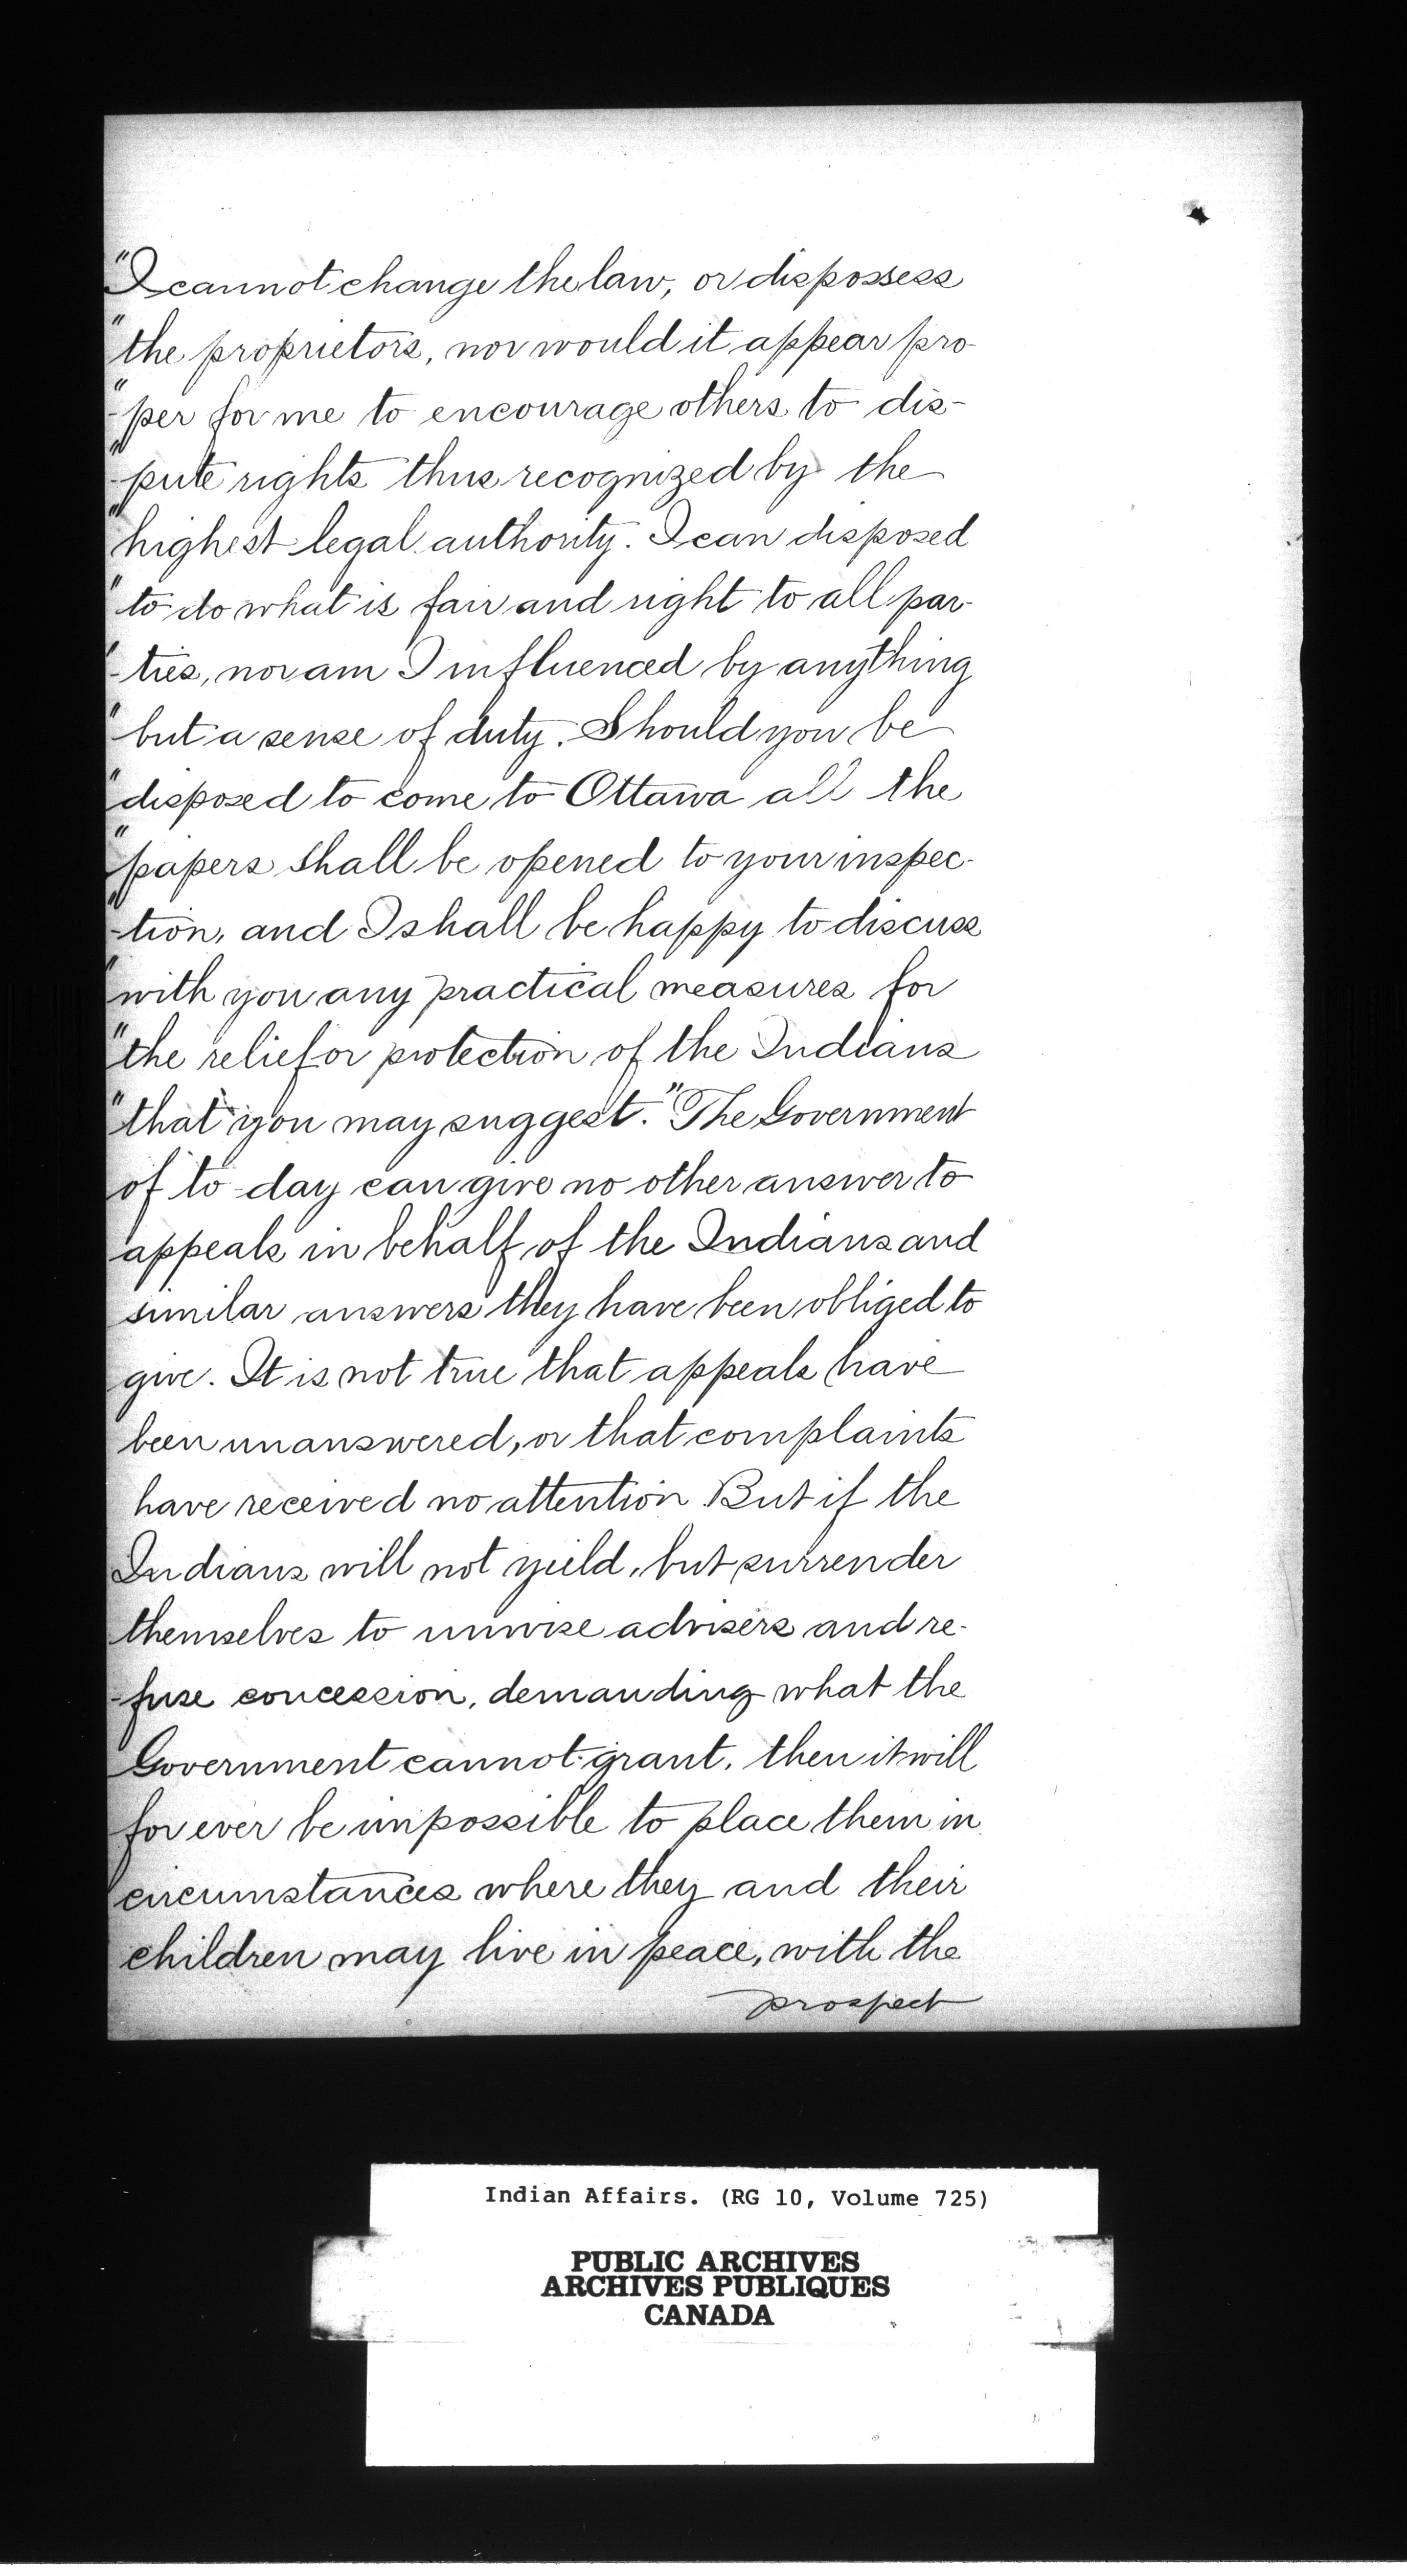 "I cannot change the law, or dispossess
"the proprietors, nor would it appear pro-
"-per for me to encourage others to dis-
"-pute rights thus recognized by the
"highest legal authority. I can disposed
"to do what is fair and right to all par-
"-ties, nor am I influenced by anything
"but a sense of duty. Should you be
"disposed to come to Ottawa all the
"papers shall be opened to your inspec-
"-tion, and I shall be happy to discuss
"with you any practical measures for
"the relief or protection of the Indians
"that you may suggest." The Government
of to-day can give no other answer to
appeals in behalf of the Indians and
similar answers they have been obliged to
give. It is not true that appeals have
been unanswered, or that complaints
have received no attention. But if the
Indians will not yield, but surrender
themselves to unwise advisers and re-
-fuse concession, demanding what the
Government cannot grant, then it will
for ever be impossible to place them in
circumstances where they and their
children may live in peace, with the
prospect
Indian Affairs. (RG 10, Volume 725)
PUBLIC ARCHIVES
ARCHIVES PUBLIQUES
CANADA